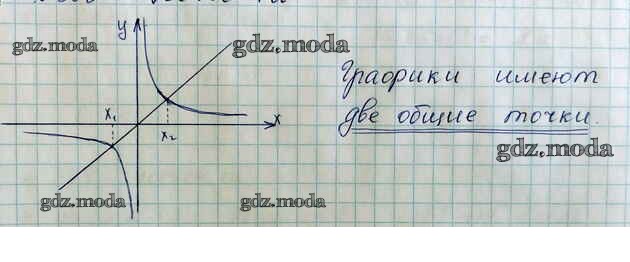 y
gdz.moda
gdz.moda
Графики имеют
x₁
x
две общие точки.
x₂
gdz.moda
gdz.moda
gdz.moda